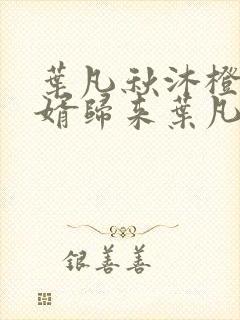 葉凡秋沐橙
婿歸来葉凡
银善善